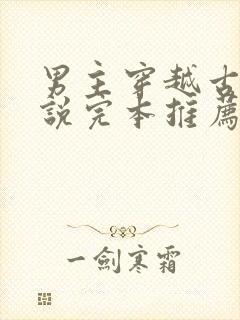 男主穿越古
說完本推薦
一劍寒霜